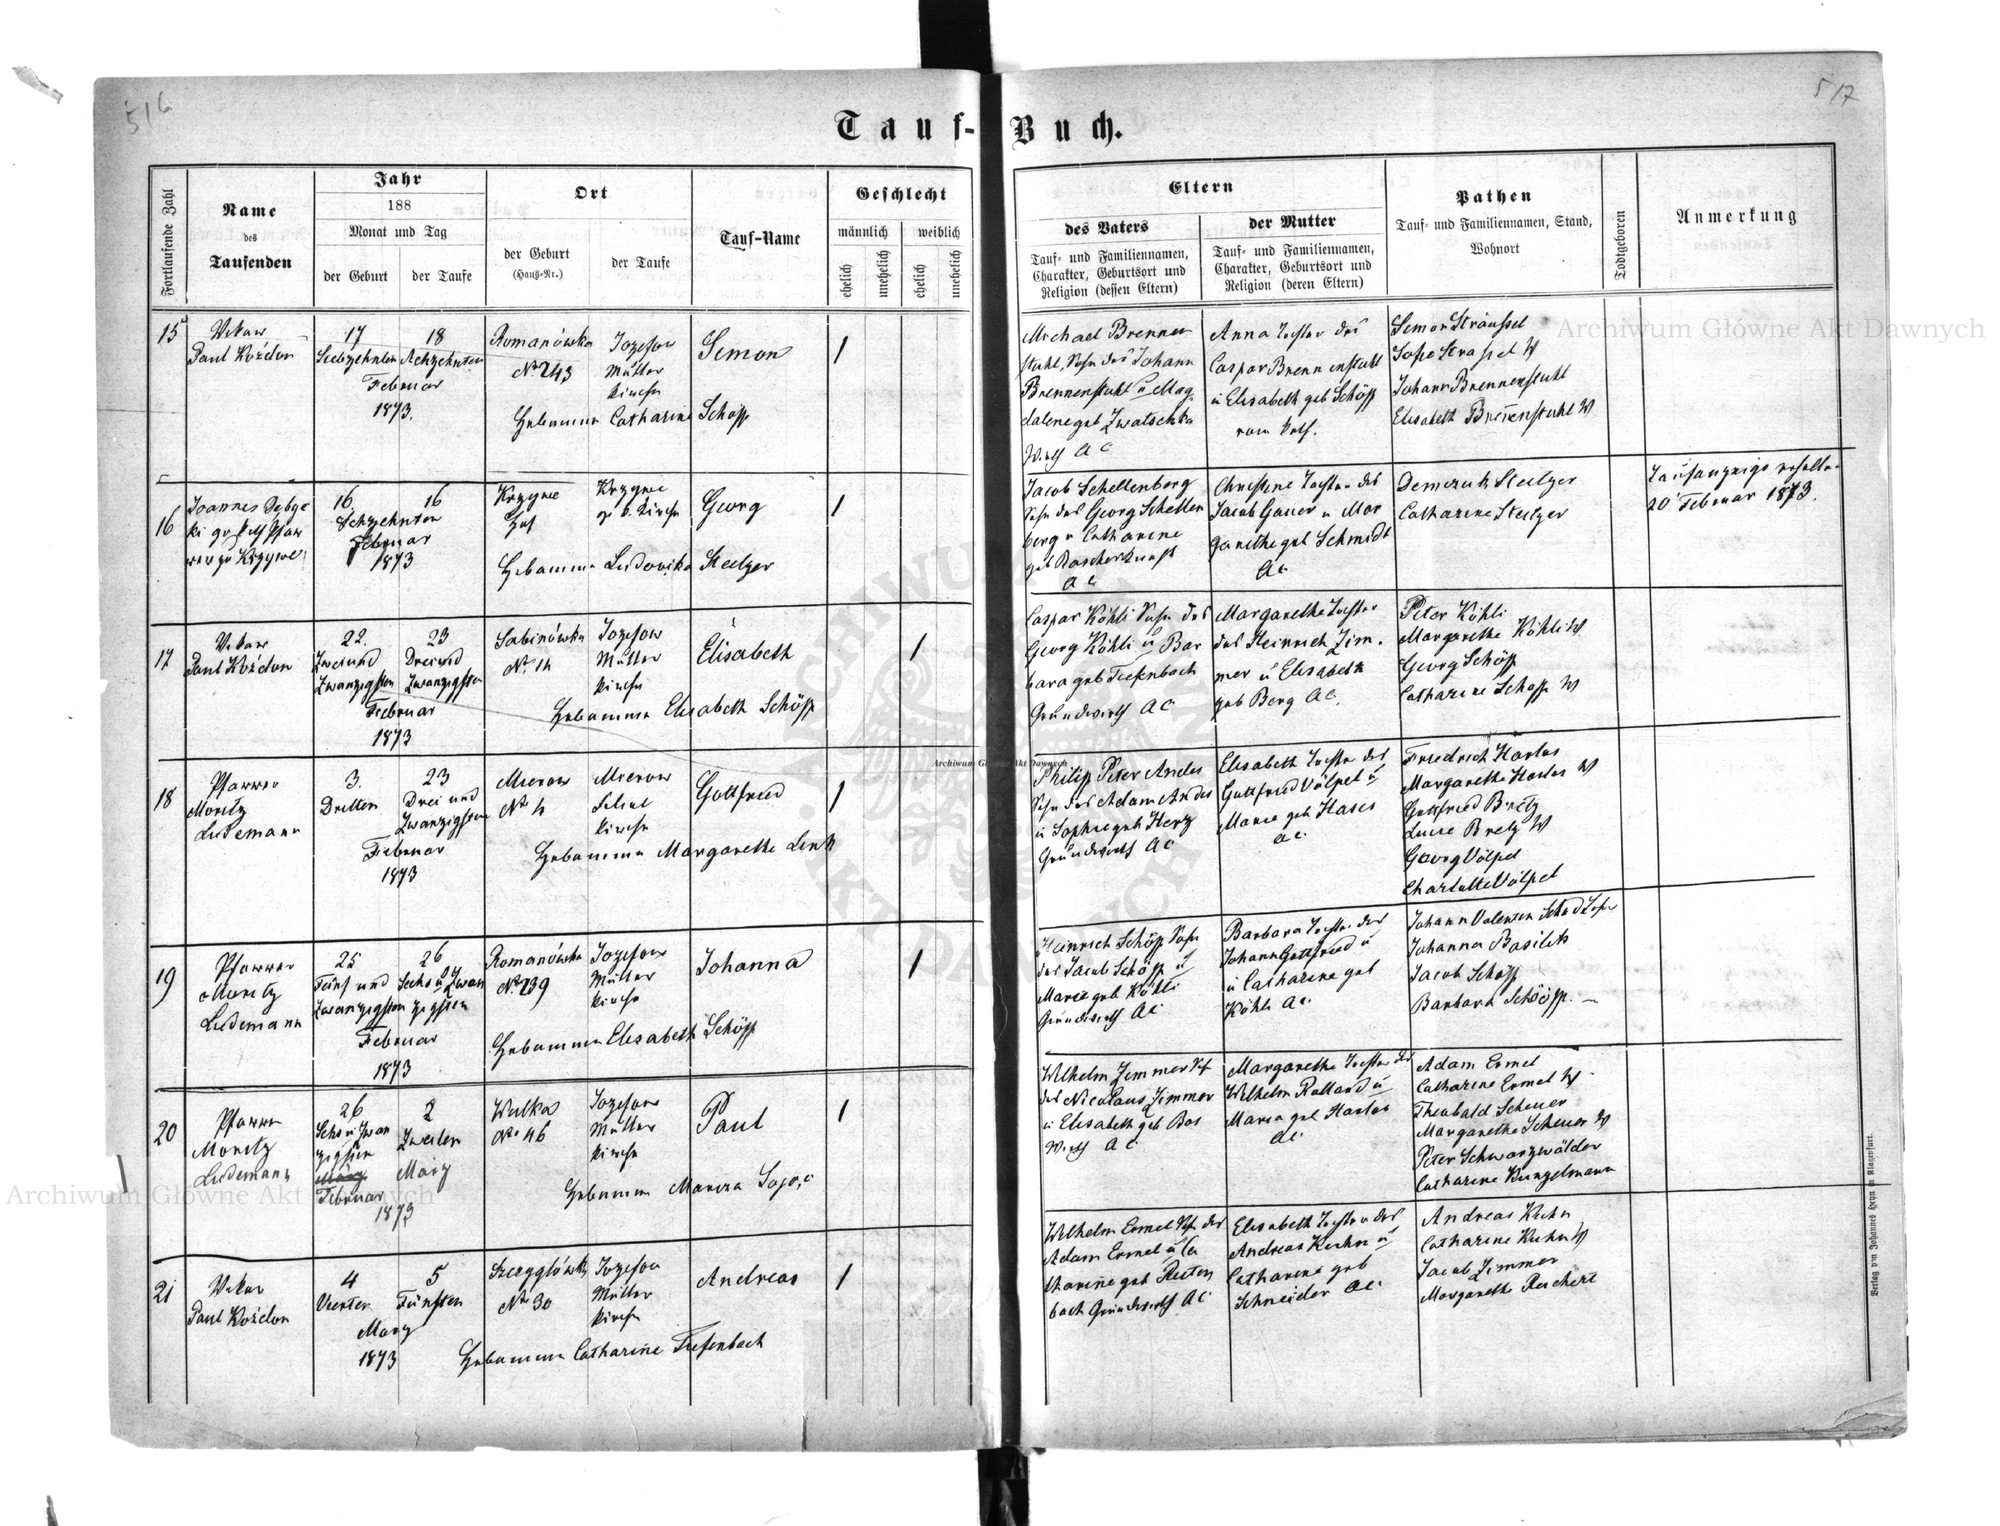 516
517
Tauf-Buch.
Fortlaufende Zahl
Name
des
Taufenden
Jahr
188
Monat und Tag
der Geburt
der Taufe
Ort
der Geburt
(Haus-Nr.)
der Taufe
Tauf-Name
Geschlecht
männlich
weiblich
ehelich
unehelich
ehelich
unehelich
Eltern
des Vaters
Tauf- und Familiennamen,
Charakter, Geburtsort und
Religion (dessen Eltern)
der Mutter
Tauf- und Familiennamen,
Charakter, Geburtsort und
Religion (deren Eltern)
Pathen
Tauf- und Familiennamen, Stand,
Wohnort
Todtgeboren
Anmerkung
15
Vikar
Paul Koźdon
17
Siebzehnten
18
Achzehnten
Februar
1873.
Romanówka
No 243
Jozefow
Mutter
kirche
Simon
1
Hebamme Catharine Schöpp
Michael Brennen
stuhl, Sohn des Johann
Brennenstuhl u Mag
dalene geb Zwatschka
Wirth AC
Anna Tochter des
Caspar Brennenstuhl
u Elisabeth geb Schöpp
Simon Straussel
Sofie Strassel W
Johann Brennenstuhl
Elisabeth Brennenstuhl W
16
Joannes
16
16
Sechzehnten
Februar
1873
Krzywe
Hof
Krzywe
Kirche
Georg
1
Hebamme Ludovika Stelzer
Jacob Schellenberg
Sohn des Georg Schellen
berg u Catharine
AC
Christine Tochter des
Jacob Gauer u Mar
garethe geb Schmidt
AC
Stelzer
Catharine Stelzer
20 Februar 1873.
17
Vikar
Paul Koźdon
22.
Zweiund
Zwanzigsten
23
Dreiund
Zwanzigsten
Februar
1873
Sabinówka
No 14
Jozefow
Mutter
kirche
Elisabeth
1
Hebamme Elisabeth Schöpp
Caspar Köhli Sohn des
Georg Köhli u Bar
bara geb Tiefenbach
Grundwirth AC
Margarethe Tochter
des Heinrich Zim
mer u Elisabeth
geb Berg AC.
Peter Köhli
Margarethe Köhli W
Georg Schöpp
Catharine Schöpp W
18
Pfarrer
Moritz
Ludemann
3.
Dritten
23
Drei und
Zwanzigsten
Februar
1873
Mierow
No 4
Mierow
Filial
kirche
Gottfried
1
Hebamme Margarethe Link
Philipp Peter Andes
Sohn des Adam Andes
u Sophie geb Herz
Grundwirth AC
Elisabeth Tochter des
Gottfried Völpel u
Marie geb Hases
AC
Friedrich Harlos
Margarethe Harlos W
Gottfried Bretz
Luise Bretz W
Georg Völpel
Charlotte Völpel
19
Pfarrer
Moritz
Ludemann
25
Fünf und
Zwanzigsten
26
Sechs u Zwan
zigsten
Februar
1873
Romanówka
No 239
Jozefow
Mutter
kirche
Johanna
1
Hebamme Elisabeth Schöpp
Heinrich Schöpp Sohn
des Jacob Schöpp u
Marie geb Köhli
Grundwirth AC
Barbara Tochter des
Johann Gottfried u
u Catharine geb
Köhli AC
Johann Valentin
Johanna Basilits
Jacob Schöpp
Barbara Schöpp. —
20
Pfarrer
Moritz
Ludemann
26
Sechs u Zwan
zigsten
März
Februar
1873
2
Zweiten
März
Wulka
No 46
Jozefow
Mutter
kirche
Paul
1
Hebamme
Wilhelm Zimmer
des Nicolaus Zimmer
u Elisabeth geb Bos
Wirth AC
Margarethe Tochter des
Wilhelm Rollard u
Maria geb Harlos
AC
Adam Ermel
Catharine Ermel W
Theobald Scheuer
Margarethe Scheuer W
Peter Schwarzwälder
Catharine Kunzelmann
21
Vikar
Paul Koźdon
4
Vierter
5
Fünften
März
1873
Szczyglówka
No 30
Jozefow
Mutter
kirche
Andreas
1
Hebamme Catharine Tiefenbach
Wilhelm Ermel des
Adam Ermel u Ca
tharine geb Reiten
bach Grundwirth AC
Elisabeth Tochter des
Andreas Kuhn u
Catharine geb
Schneider AC
Andreas Kuhn
Catharine Kuhn W
Jacob Zimmer
Margarethe Reichert
Verlag von Johannes Heyn in Klagenfurt.
Archiwum Główne Akt Dawnych
Archiwum Główne Akt Dawnych
Archiwum Główne Akt Dawnych